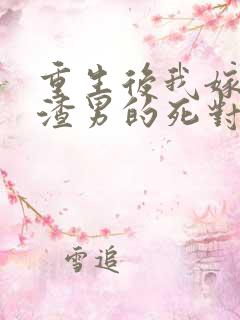 重生後我嫁
渣男的死對
雪追